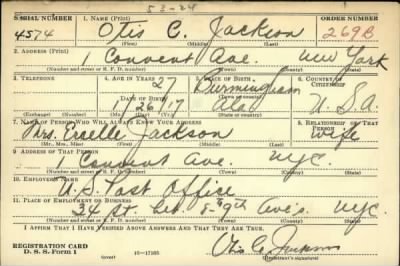 53-24
SERIAL NUMBER 1. NAME (Print) ORDER NUMBER
4574 Otis C. Jackson 269B
(First) (Middle) (Last)
2. ADDRESS (Print)
1 Convent Ave. New York
(Number and street or R. F. D. number) (Town) (County) (State)
3. TELEPHONE 4. AGE IN YEARS 5. PLACE OF BIRTH 6. COUNTRY OF CITIZENSHIP
27 Burmingham
DATE OF BIRTH (Town or county)
1 26 17 Ala. U.S.A.
(Exchange) (Number) (Mo.) (Day) (Yr.) (State or country)
7. NAME OF PERSON WHO WILL ALWAYS KNOW YOUR ADDRESS 8. RELATIONSHIP OF THAT PERSON
Mrs. Jackson wife
(Mr., Mrs., Miss) (First) (Middle) (Last)
9. ADDRESS OF THAT PERSON
1 Convent Ave. NYC.
(Number and street or R. F. D. number) (Town) (County) (State)
10. EMPLOYER'S NAME
U.S. Post Office
11. PLACE OF EMPLOYMENT OR BUSINESS
34 St. bet. 8-9th Ave's. NYC.
(Number and street or R. F. D. number) (Town) (County) (State)
I AFFIRM THAT I HAVE VERIFIED ABOVE ANSWERS AND THAT THEY ARE TRUE.
REGISTRATION CARD
D. S. S. Form 1 16-17105 Otis C. Jackson
(Registrant's signature)